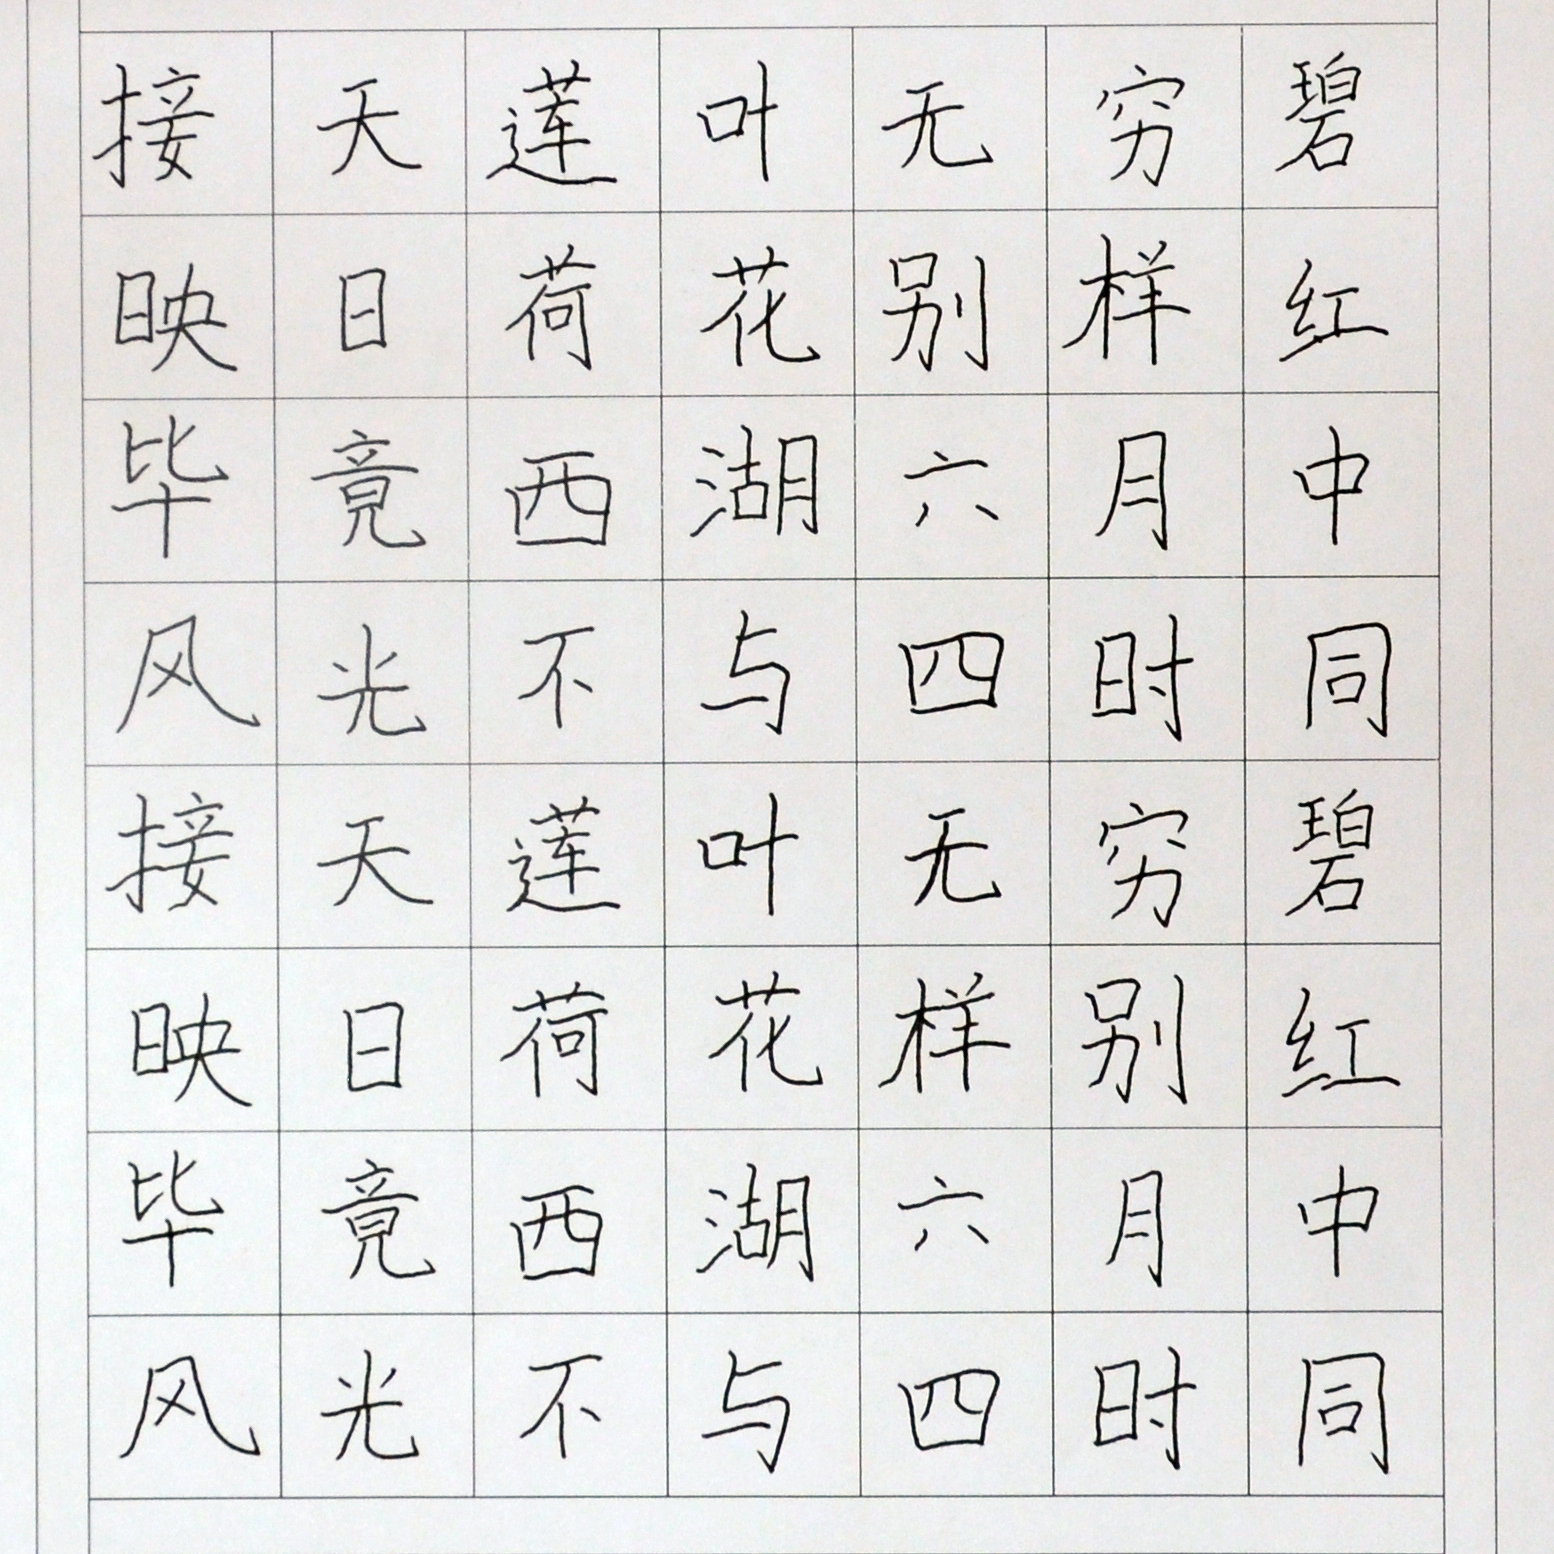 接天莲叶无穷碧
映日荷花别样红
毕竟西湖六月中
风光不与四时同
接天莲叶无穷碧
映日荷花样别红
毕竟西湖六月中
风光不与四时同